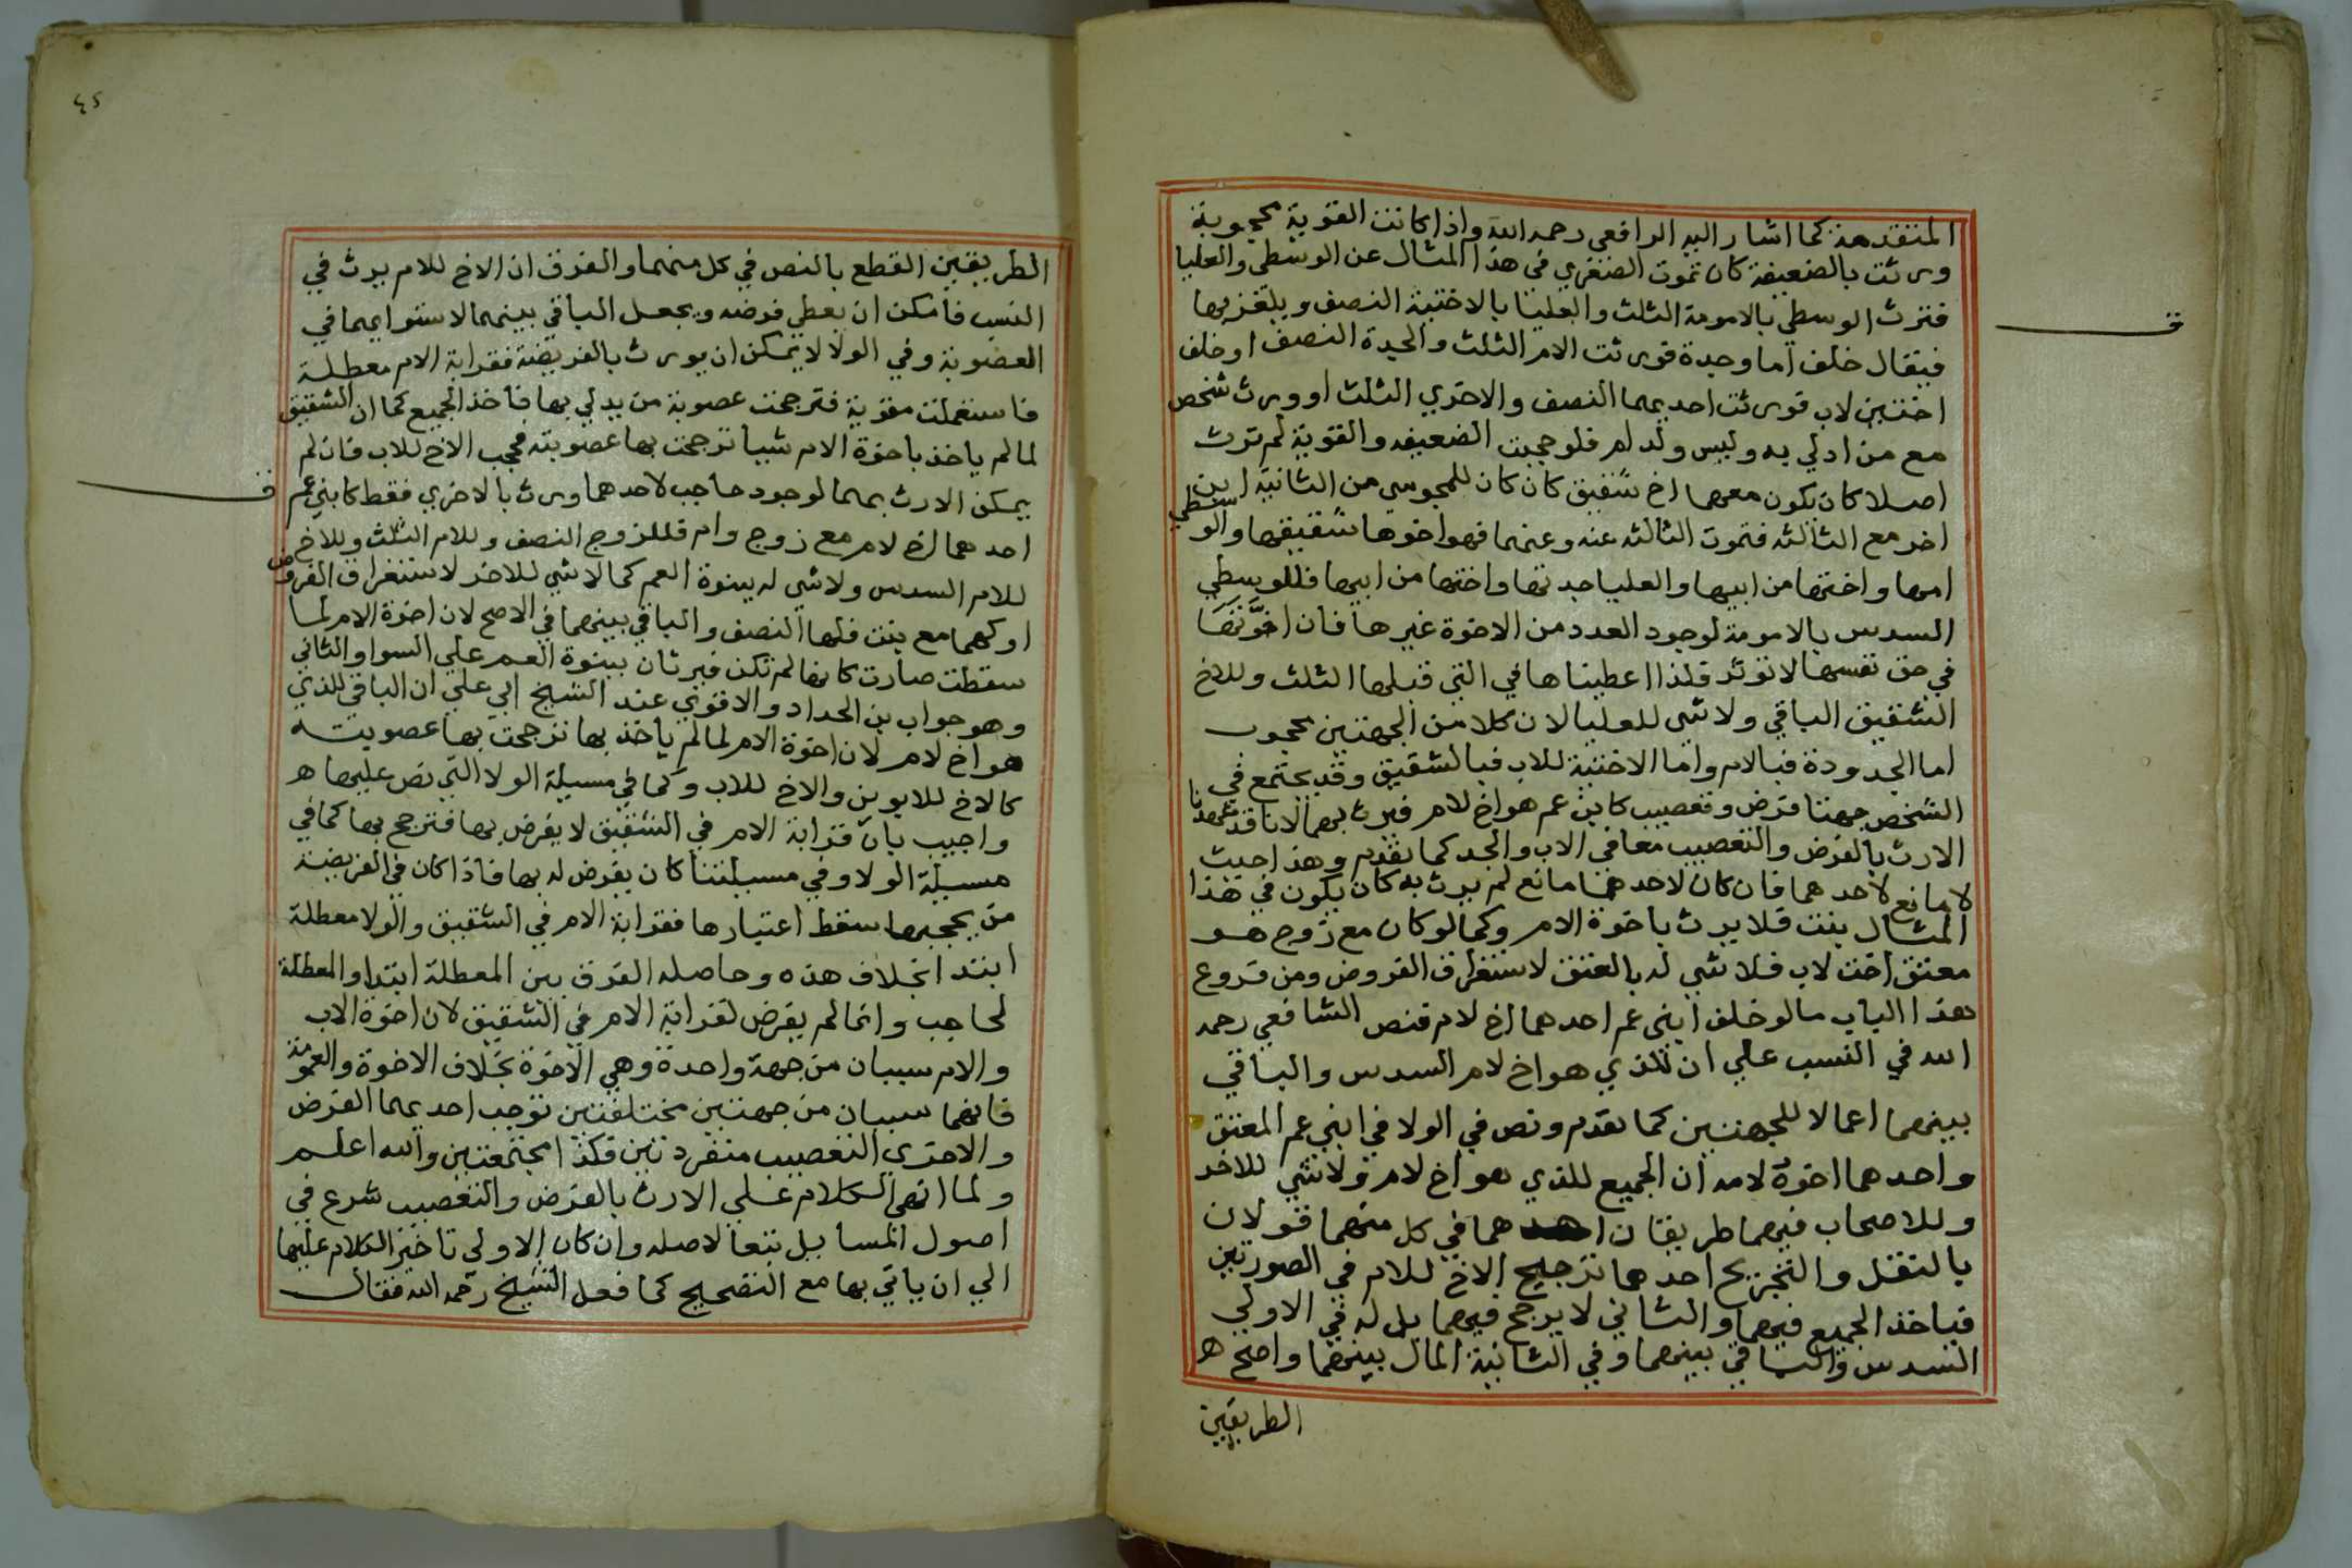 المتقدمة كما اشار اليه الرافعي رحمه الله واذا كانت القوية محجوبة
ورثت بالضعيفة كان تموت الصغري في هذا المثال عن الوسطي والعليا
فترث الوسطي بالامومة الثلث والعليا بالاختية النصف ويلغز بها
فيقال خلف اما وجدة فورثت الام الثلث والجدة النصف او خلف
اختين لاب فورثت احديهما النصف والاخري الثلث او ورث شخص
مع من ادلي به وليس ولد ام فلو حجبت الضعيفه والقوية لم ترث
اصلا كان يكون معهما اخ شقيق كان كان للمجوسي من الثانية ابن
اخر مع الثالثه فتموت الثالثه عنه وعنهما فهو اخوها شقيقها والوسطي
امها واختها من ابيها والعليا جدتها واختها من ابيها فللوسطي
السدس بالامومة لوجود العدد من الاخوة غيرها فان اخوتها
في حق نفسها لا تؤثر فلذا اعطيناها في التي قبلها الثلث وللاخ
الشقيق الباقي ولا شي للعليا لان كلا من الجهتين محجوب
اما الجدودة فبالام واما الاختية للاب فبالشقيق وقد يجتمع في
الشخص جهتا فرض وتعصيب كابن عم هو اخ لام فيرث بهما لانا قد عهدنا
الارث بالفرض والتعصيب معا في الاب والجد كما تقدم وهذا حيث
لا مانع لاحدهما فان كان لاحدهما مانع لم يرث به كان يكون في هذا
المثال بنت فلا يرث باخوة الام وكما لو كان مع زوج هو
معتق اخت لاب فلا شي له بالعتق لاستغراق الفروض ومن فروع
هذا الباب ما لو خلف ابني عم احدهما اخ لام فنص الشافعي رحمه
الله في النسب علي ان للذي هو اخ لام السدس والباقي
بينهما اعمالا للجهتين كما تقدم ونص في الولا في ابني عم المعتق
واحدهما اخوه لامه ان الجميع للذي هو اخ لام ولا شي للاخر
وللاصحاب فيهما طريقان احدهما في كل منهما قولان
بالنقل والتخريج احدهما ترجيح الاخ للام في الصورتين
فياخذ الجميع فيهما والثاني لا يرجح فيهما بل له في الاولي
السدس والباقي بينهما وفي الثانية المال بينهما واصح ه
الطريقين
٤٥
الطريقين القطع بالنص في كل منهما والفرق ان الاخ للام يرث في
النسب فامكن ان يعطي فرضه ويجعل الباقي بينهما لاستوايهما في
العصوبة وفي الولا لا يمكن ان يورث بالفريضة فقرابة الام معطلة
فاستعملت مقوية فترجحت عصوبة من يدلي بها فاخذ الجميع كما ان الشقيق
لما لم ياخذ باخوة الام شيا ترجحت بها عصوبته فحجب الاخ للاب فان لم
يمكن الارث بهما لوجود حاجب لاحدهما ورث بالاخري فقط كابني عم
احدهما اخ لام مع زوج وام فللزوج النصف وللام الثلث وللاخ
للام السدس ولا شي له ببنوة العم كما لا شي للاخر لاستغراق الفروض
او كهما مع بنت فلها النصف والباقي بينهما في الاصح لان اخوة الام لما
سقطت صارت كانها لم تكن فيرثان ببنوة العم علي السوا والثاني
وهو جواب بن الحداد والاقوي عند الشيخ ابي علي ان الباقي للذي
هو اخ لام لان اخوة الام لما لم ياخذ بها ترجحت بها عصوبته
كالاخ للابوين والاخ للاب وكما في مسيلة الولا التي نص عليها ه
واجيب بان قرابة الام في الشقيق لا يفرض بها فترجح بها كما في
مسيلة الولا وفي مسيلتنا كان يفرض له بها فاذا كان في الفريضة
من يحجبها سقط اعتبارها فقرابة الام في الشقيق والولا معطلة
ابتدا بخلاف هذه وحاصله الفرق بين المعطلة ابتدا والمعطلة
لحاجب وانما لم يفرض لقرابة الام في الشقيق لان اخوة الاب
والام سببان من جهة واحدة وهي الاخوة بخلاف الاخوة والعمومة
فانهما سببان من جهتين مختلفتين توجب احديهما الفرض
والاخري التعصيب منفردتين فكذا مجتمعتين والله اعلم
ولما انهي الكلام علي الارث بالفرض والتعصيب شرع في
اصول المسايل تبعا لاصله وان كان الاولي تاخير الكلام عليها
الي ان ياتي بها مع التصحيح كما فعل الشيخ رحمه الله فقال